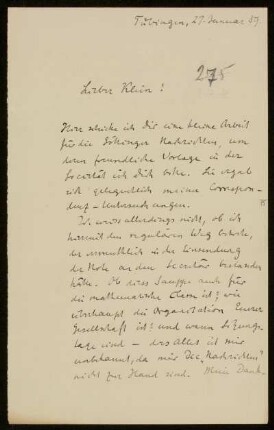 Tübingen, 27. Januar 89
275
Lieber Klein!
Hier schicke ich Dir eine kleine Arbeit
für die Göttinger Nachrichten, um
deren freundliche Vorlage in der
Societät ich Dich bitte. Sie ergab
sich gelegentlich meiner Correspon-
denz-Untersuchungen.
Ich weiss allerdings nicht, ob ich
hiermit den regulären Weg betrete,
der vermuthlich in der Einsendung
der Note an den Secretär bestanden
hätte. Ob dieses Sauppe auch für
die mathematische Classe ist? wie
überhaupt die Organisation Eurer
Gesellschaft ist? und wann Sitzungs-
tage sind – das alles ist mir
unbekannt, da mir die „Nachrichten"
nicht zur Hand sind. Mein Dank-